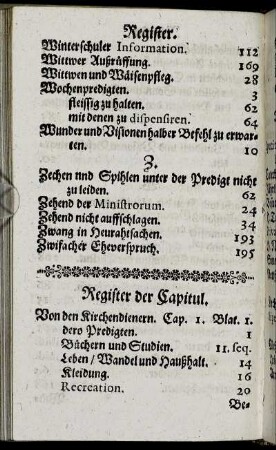 Register.
Winterschuler Information. 112
Wittwer Außrüffung. 169
Wittwen und Wäisenpfleg. 28
Wochenpredigten. 3
fleissig zu halten. 62
mit denen zu dispensiren. 64
Wunder und Visionen halber Befehl zu erwar-
ten. 10
Z.
Zechen nnd Spihlen unter der Predigt nicht
zu leiden. 62
Zehend der Ministrorum. 24
Zehend nicht auffschlagen. 34
Zwang in Heurahtsachen. 193
Zwifacher Eheverspruch. 195
Register der Capitul.
Von den Kirchendienern. Cap. 1. Blat. 1.
dero Predigten. 1
Büchern und Studien. 11. seq.
Leben / Wandel und Haußhalt. 14
Kleidung. 16
Recreation. 20
Be-